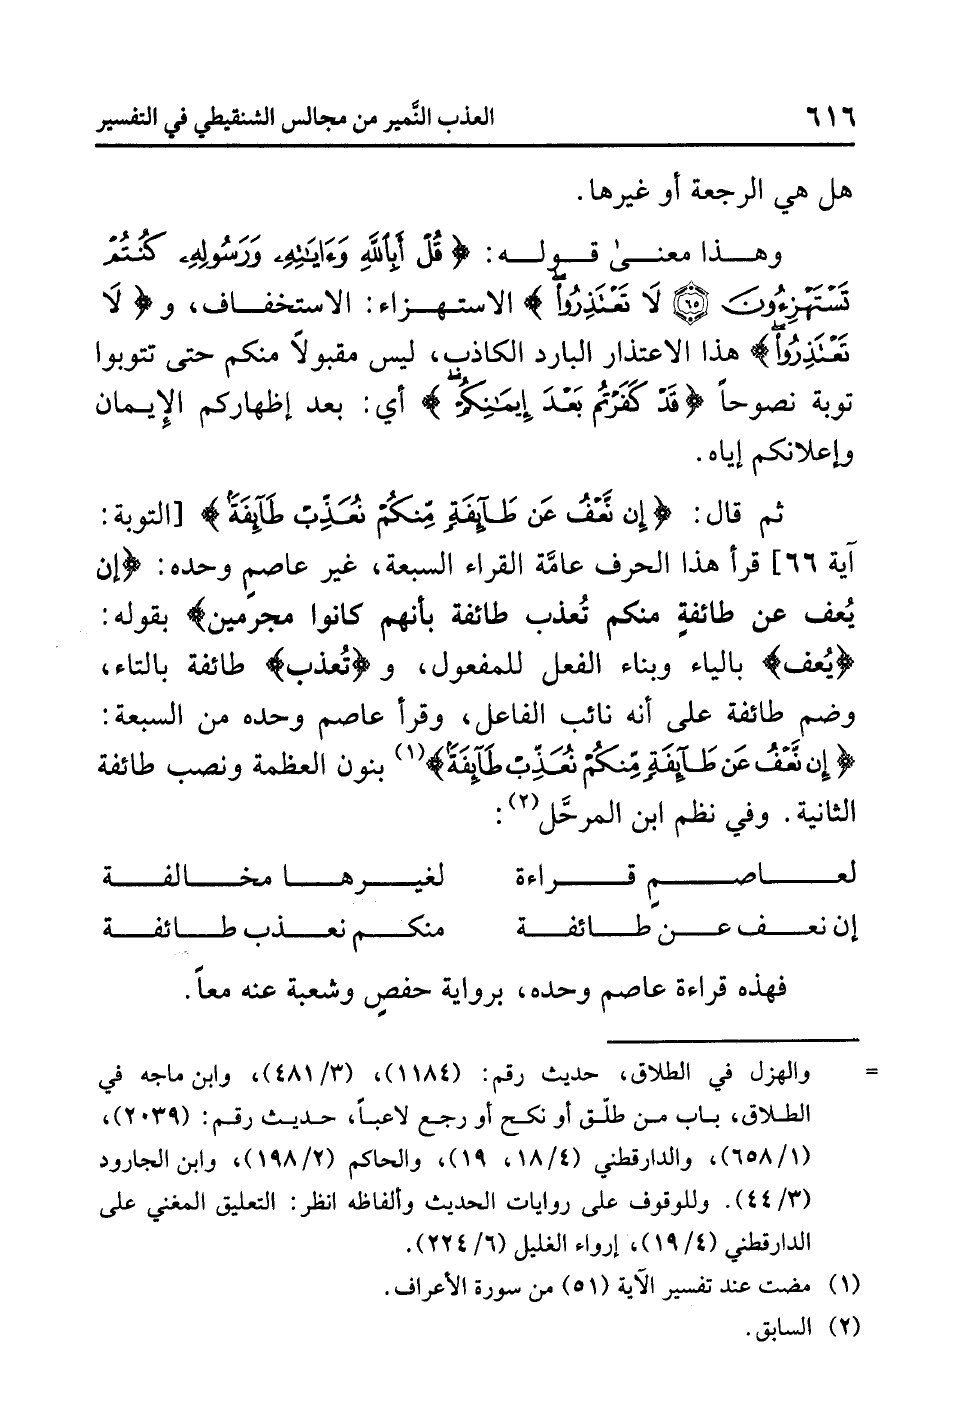 ٦١٦ العذب النَّمير من مجالس الشنقيطي في التفسير
هل هي الرجعة أو غيرها.
وهذا معنىٰ قوله: ﴿ قُلْ أَبِٱللَّهِ وَءَايَٰتِهِۦ وَرَسُولِهِۦ كُنتُمْ
تَسْتَهْزِءُونَ ﴿٦٥﴾ لَا تَعْتَذِرُوا۟ۖ ﴾ الاستهزاء: الاستخفاف، و ﴿ لَا
تَعْتَذِرُوا۟ۖ﴾ هذا الاعتذار البارد الكاذب، ليس مقبولاً منكم حتى تتوبوا
توبة نصوحاً ﴿ قَدْ كَفَرْتُم بَعْدَ إِيمَٰنِكُمْۚ ﴾ أي: بعد إظهاركم الإيمان
وإعلانكم إياه.
ثم قال: ﴿ إِن نَّعْفُ عَن طَآئِفَةٍ مِّنكُمْ نُعَذِّبْ طَآئِفَةًۢ ﴾ [التوبة:
آية ٦٦] قرأ هذا الحرف عامَّة القراء السبعة، غير عاصمٍ وحده: ﴿إن
يُعف عن طائفةٍ منكم تُعذب طائفة بأنهم كانوا مجرمين﴾ بقوله:
﴿يُعف﴾ بالياء وبناء الفعل للمفعول، و ﴿تُعذب﴾ طائفة بالتاء،
وضم طائفة على أنه نائب الفاعل، وقرأ عاصم وحده من السبعة:
﴿ إِن نَّعْفُ عَن طَآئِفَةٍ مِّنكُمْ نُعَذِّبْ طَآئِفَةًۢ﴾(١) بنون العظمة ونصب طائفة
الثانية. وفي نظم ابن المرحَّل(٢):
لعاصمٍ قراءة لغيرها مخالفة
إن نعف عن طائفة منكم نعذب طائفة
فهذه قراءة عاصم وحده، برواية حفصٍ وشعبة عنه معاً.
= والهزل في الطلاق، حديث رقم: (١١٨٤)، (٤٨١/٣)، وابن ماجه في
الطلاق، باب من طلّق أو نكح أو رجع لاعباً، حديث رقم: (٢٠٣٩)،
(٦٥٨/١)، والدارقطني (١٨/٤، ١٩)، والحاكم (١٩٨/٢)، وابن الجارود
(٤٤/٣). وللوقوف على روايات الحديث وألفاظه انظر: التعليق المغني على
الدارقطني (١٩/٤)، إرواء الغليل (٢٢٤/٦).
(١) مضت عند تفسير الآية (٥١) من سورة الأعراف.
(٢) السابق.